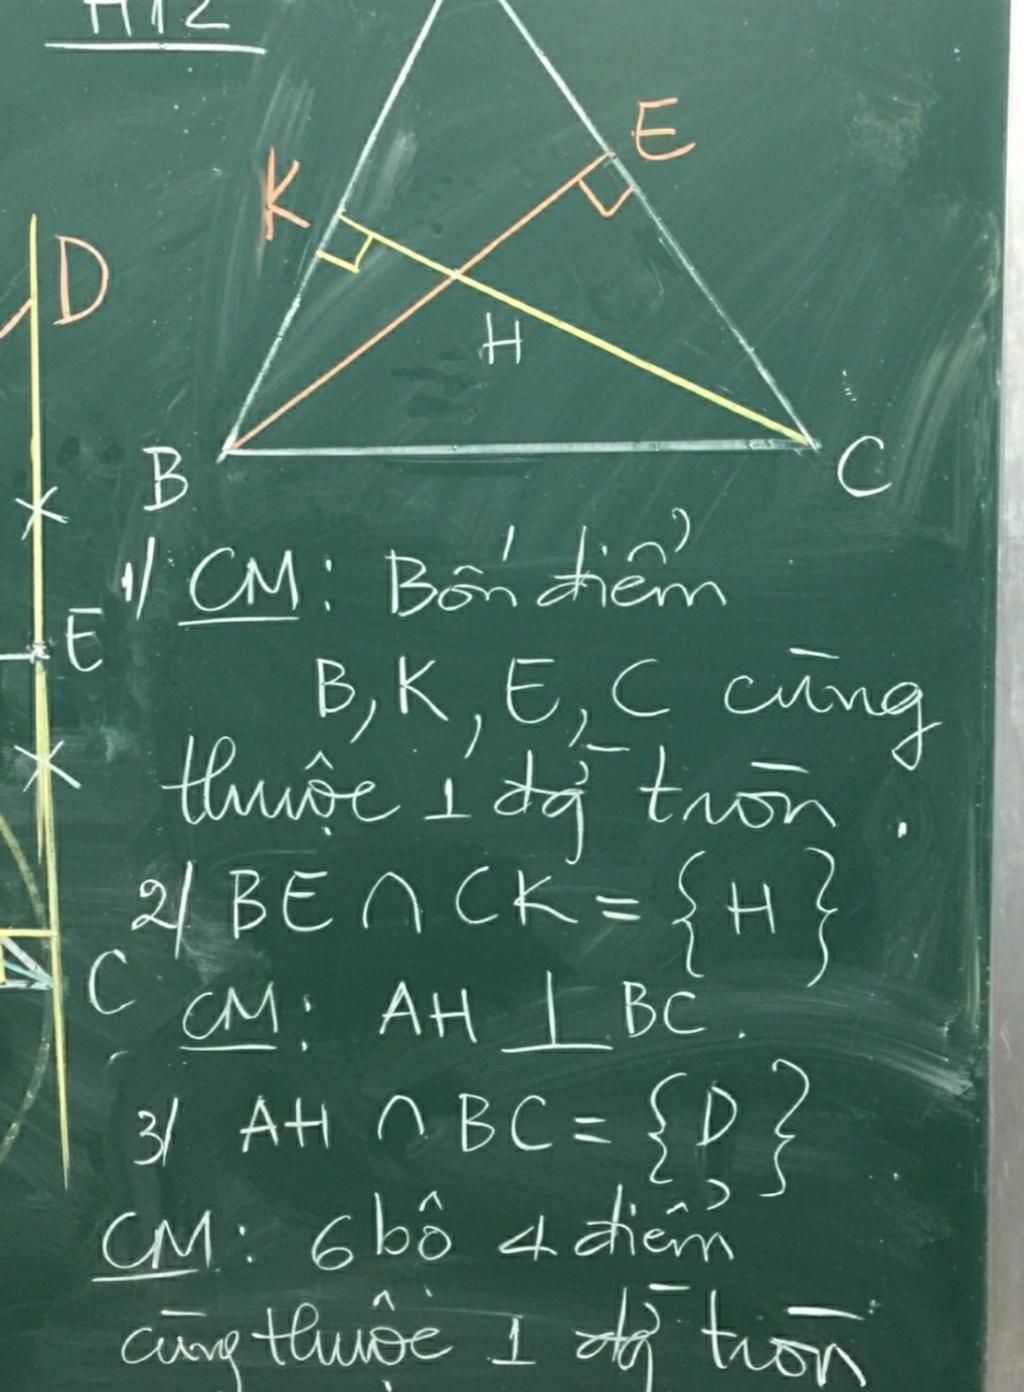 K
E
D
H
B
C
1/ CM: Bốn điểm
B, K, E, C cùng
E
thuộc 1 đg tròn.
2/ BE ∩ CK = {H}
C
CM: AH ⊥ BC.
3/ AH ∩ BC = {D}
CM: 6 bộ 4 điểm
cùng thuộc 1 đg tròn